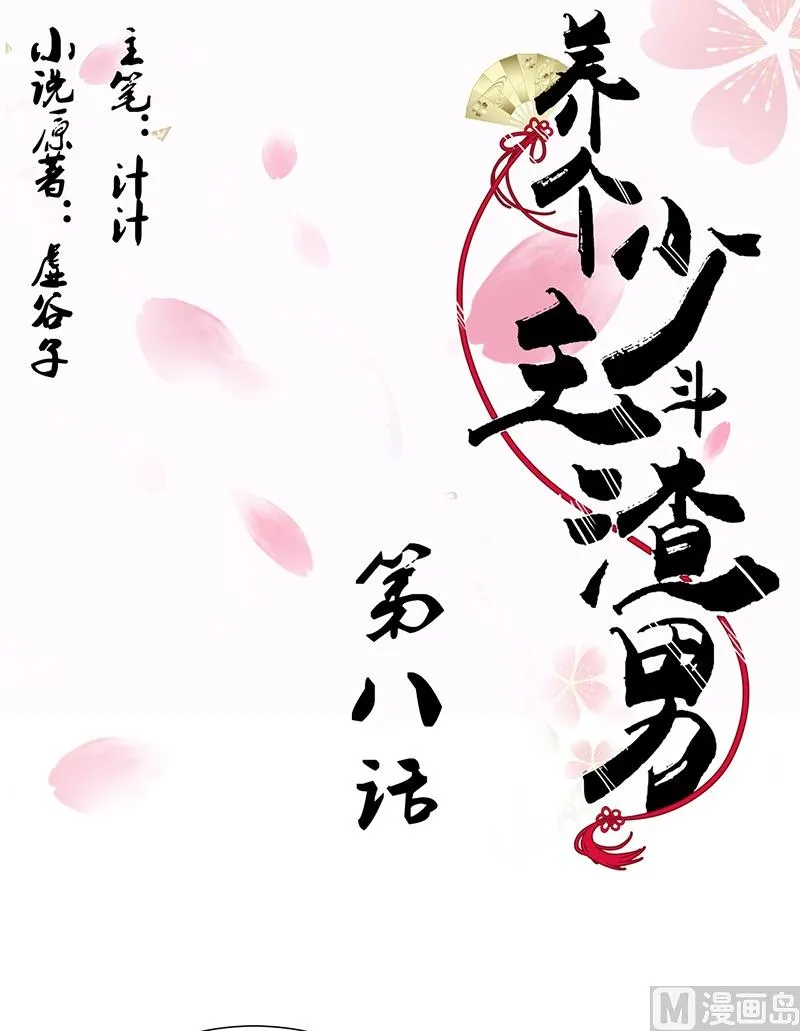 养个少主斗渣男
第八话
主笔：计计
小说原著：虚谷子
M 漫画岛